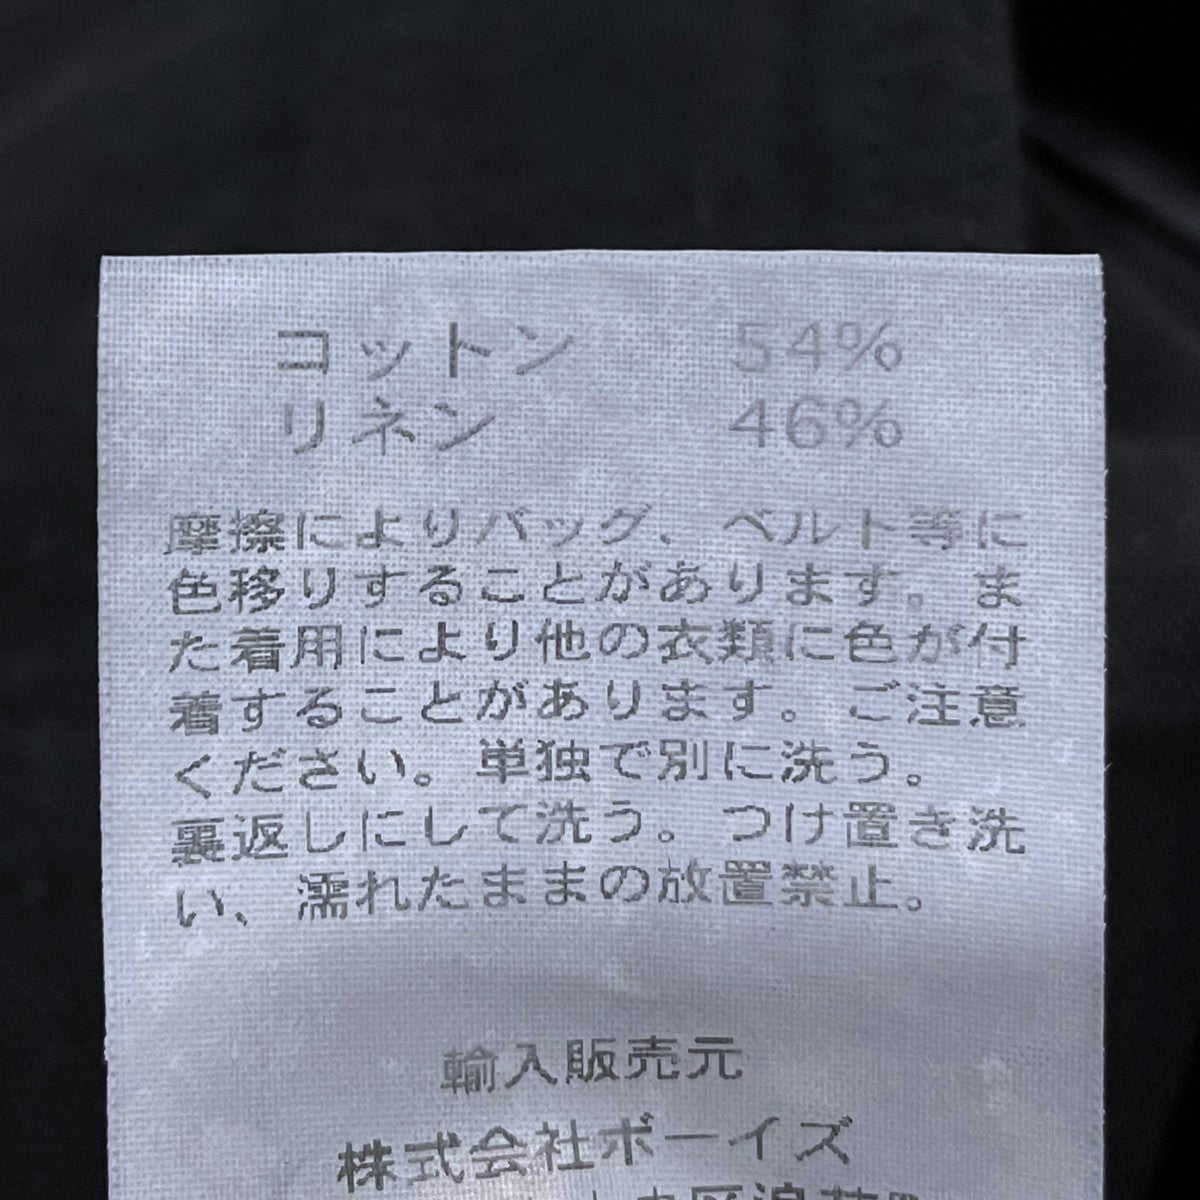 コットン 54%
リネン 46%
摩擦によりバッグ、ベルト等に
色移りすることがあります。ま
た着用により他の衣類に色が付
着することがあります。ご注意
ください。単独で別に洗う。
裏返しにして洗う。つけ置き洗
い、濡れたままの放置禁止。
輸入販売元
株式会社ボーイズ